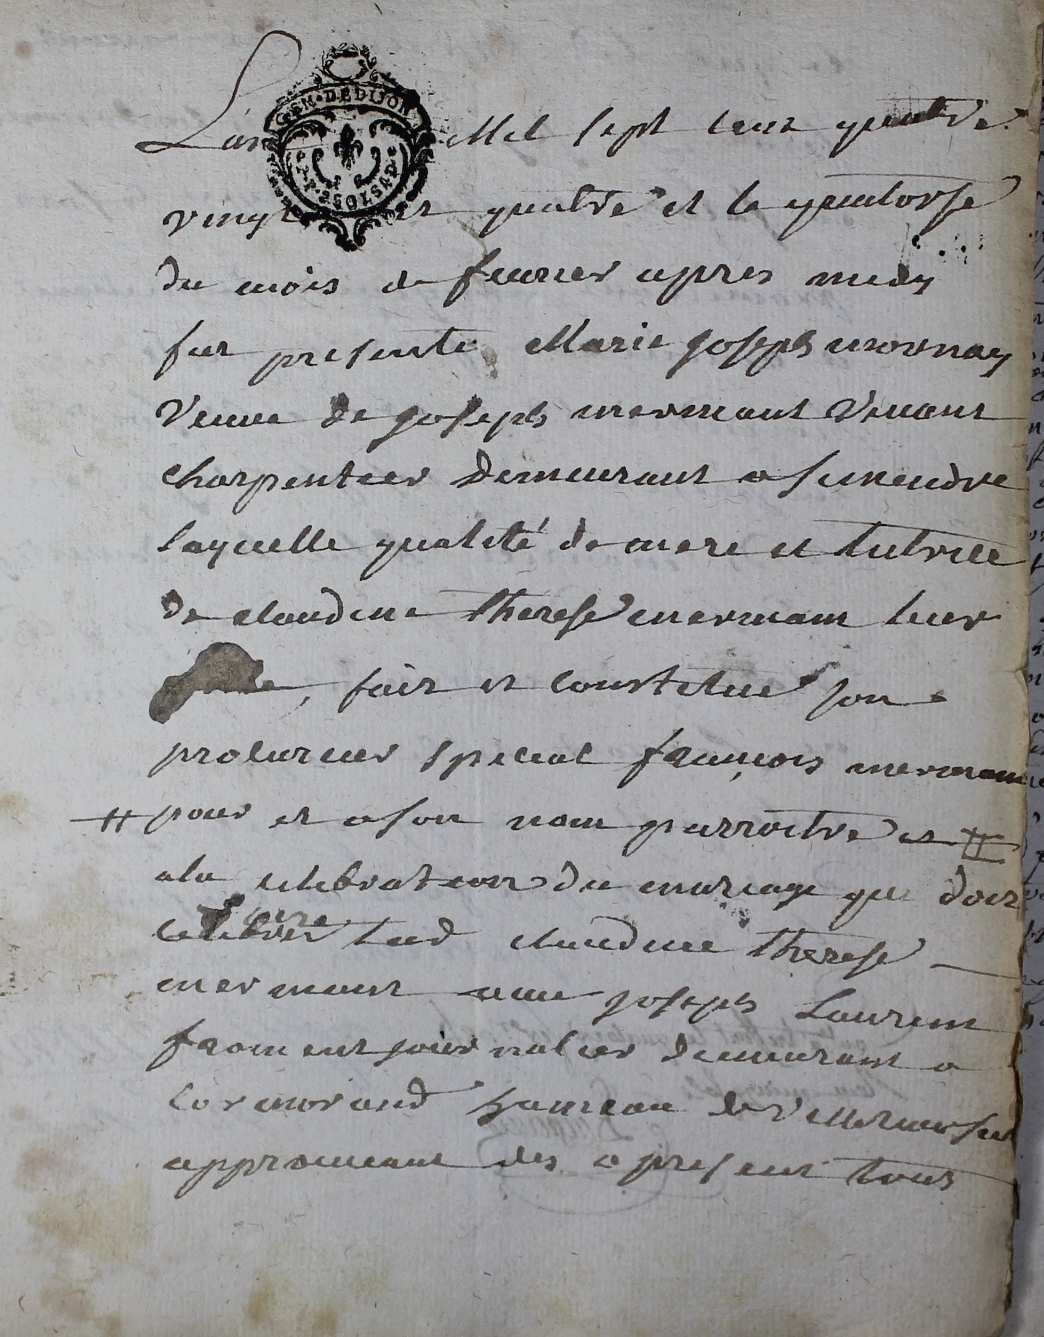 GEN. DE DIJON
L'an Mil sept cent quatre
vingt quatre et le quatorse
du mois de feurier apres midy
fut presente Marie Joseph mornay
Veuue de Joseph mermant Viuant
charpentier demeurant a simendre
laquelle qualité de mere et tutrice
de claudine therese mermant leur
fille, fait et constitue son
procureur special françois mermant
pour et a son nom parroitre et
a la celebration du mariage que doit
faire
celebrer lad claudine therese
mermant auec Joseph Laurent
froment journalier demeurant a
cormorand hameau de
approuuant des a present tous